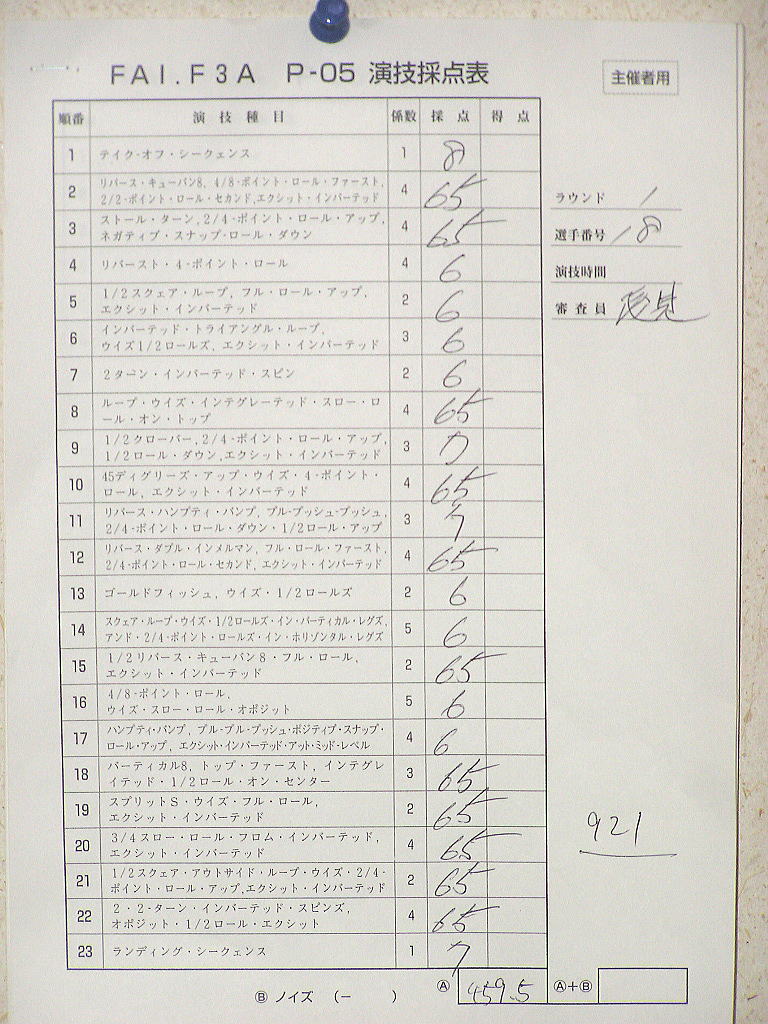 FAI.F3A P-05 演技採点表
主催者用
順番 演技種目 係数 採点 得点
1 テイク・オフ・シークェンス 1 8
2 リバース・キューバン8, 4/8-ポイント・ロール・ファースト, 2/2-ポイント・ロール・セカンド,エクシット・インバーテッド 4 65
3 ストール・ターン, 2/4-ポイント・ロール・アップ, ネガティブ・スナップ・ロール・ダウン 4 65
4 リバースト・4-ポイント・ロール 4 6
5 1/2スクェア・ループ, フル・ロール・アップ, エクシット・インバーテッド 2 6
6 インバーテッド・トライアングル・ループ, ウイズ1/2ロールズ, エクシット・インバーテッド 3 6
7 2ターン・インバーテッド・スピン 2 6
8 ループ・ウイズ・インテグレーテッド・スロー・ロール・オン・トップ 4 65
9 1/2クローバー, 2/4-ポイント・ロール・アップ, 1/2ロール・ダウン,エクシット・インバーテッド 3 7
10 45ディグリーズ・アップ・ウイズ・4-ポイント・ロール, エクシット・インバーテッド 4 65
11 リバース・ハンプティ・バンプ, プル-プッシュ-プッシュ, 2/4-ポイント・ロール・ダウン・1/2ロール・アップ 3 7
12 リバース・ダブル・インメルマン, フル・ロール・ファースト, 2/4-ポイント・ロール・セカンド, エクシット・インバーテッド 4 65
13 ゴールドフィッシュ, ウイズ・1/2ロールズ 2 6
14 スクェア・ループ・ウイズ・1/2ロールズ・イン・バーティカル・レグズ, アンド・2/4-ポイント・ロールズ・イン・ホリゾンタル・レグズ 5 6
15 1/2リバース・キューバン8・フル・ロール, エクシット・インバーテッド 2 65
16 4/8-ポイント・ロール, ウイズ・スロー・ロール・オポジット 5 6
17 ハンプティ・バンプ, プル-プル-プッシュ-ポジティブ・スナップ・ロール・アップ, エクシット・インバーテッド・アット・ミッド・レベル 4 6
18 バーティカル8, トップ・ファースト, インテグレイテッド・1/2ロール・オン・センター 3 65
19 スプリットS・ウイズ・フル・ロール, エクシット・インバーテッド 2 65
20 3/4スロー・ロール・フロム・インバーテッド, エクシット・インバーテッド 4 65
21 1/2スクェア・アウトサイド・ループ・ウイズ・2/4-ポイント・ロール・アップ,エクシット・インバーテッド 2 65
22 2・2-ターン・インバーテッド・スピンズ, オポジット・1/2ロール・エクシット 4 65
23 ランディング・シークェンス 1 7
Ⓑ ノイズ (- ) Ⓐ 459.5 Ⓐ+Ⓑ
ラウンド 1
選手番号 18
演技時間
審査員
921